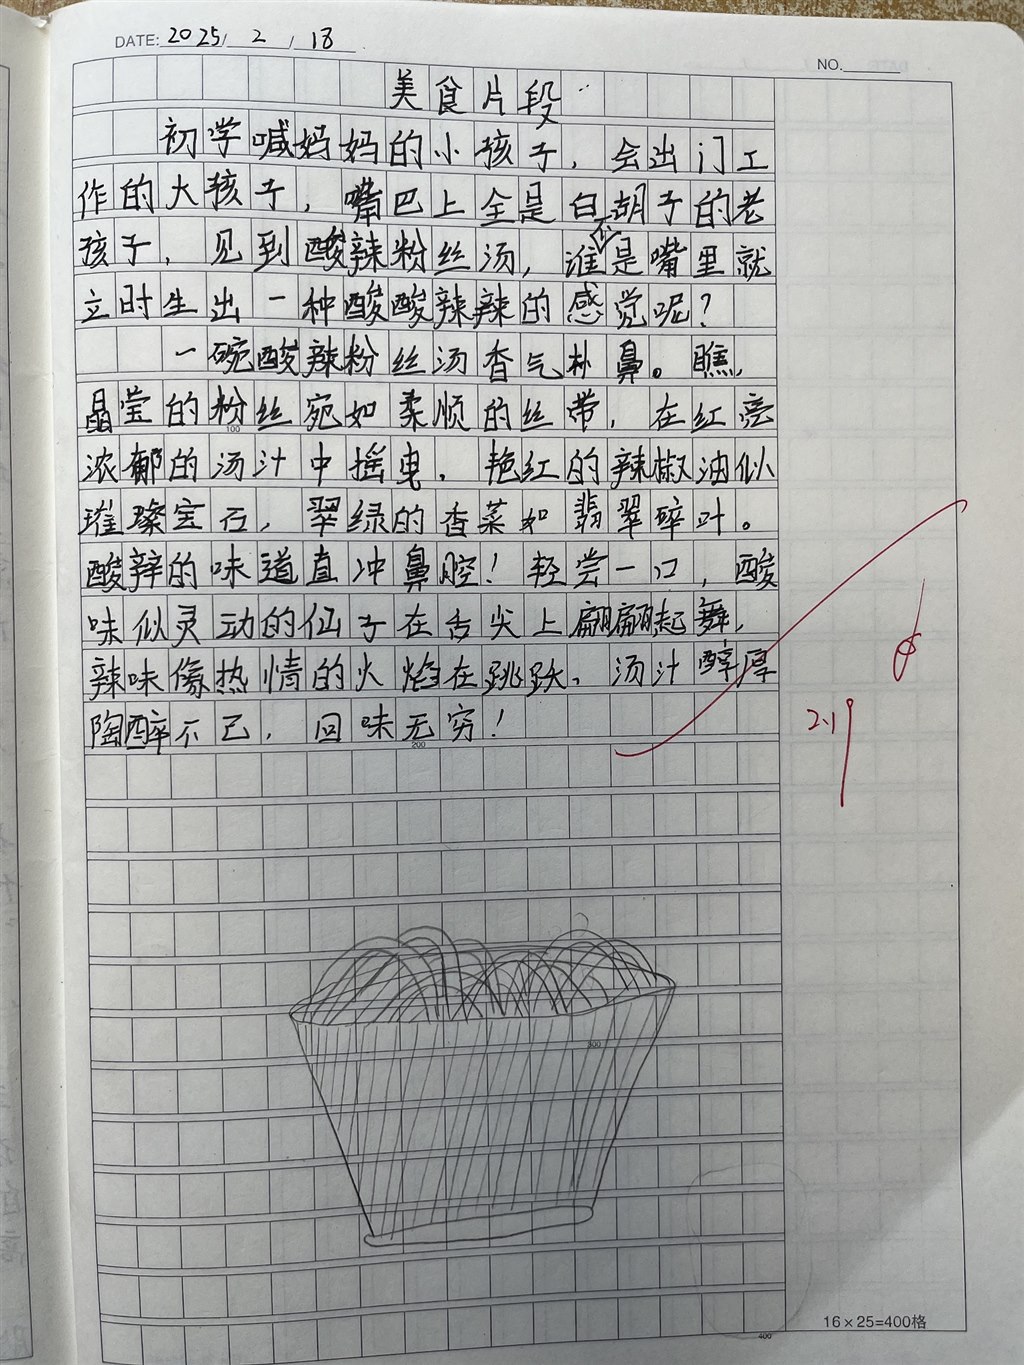 DATE: 2025/ 2 / 18
NO.
美食片段
初学喊妈妈的小孩子，会出门工
作的大孩子，嘴巴上全是白胡子的老
孩子，见到酸辣粉丝汤，谁不是嘴里就
立时生出一种酸酸辣辣的感觉呢？
一碗酸辣粉丝汤香气朴鼻。瞧，
晶莹的粉丝宛如柔顺的丝带，在红亮
100
浓郁的汤汁中摇曳，艳红的辣椒油似
璀璨宝石，翠绿的香菜如翡翠碎叶。
酸辣的味道直冲鼻腔！轻尝一口，酸
味似灵动的仙子在舌尖上翩翩起舞，
辣味像热情的火焰在跳跃，汤汁醇厚
陶醉不已，回味无穷！
200
2.19
300
16×25=400格
400